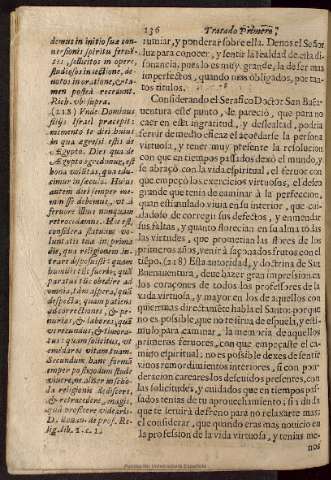 136
Tratado Primero,
demus in initio suæ con-
uersionis spiritu feruē-
tes, solliciti in opere,
studiosos in lectione, de-
uotos in oratione, & ta-
men posteà
Rich. vbi supra.
(218) Vnde Dominus
filijs Israel præcepit
memento te diei huius
in qua egressi estis de
Ægypto. Dies qua de
Ægypto egredimur, est
bona
autem diei semper me-
feruore illius nunquam
Hoc est,
considera
luntatis tua in prima
die, qua religionem in-
quàm
humilis eris feruo, quā
paratus eras obedire ad
omnia,
despecta, quàm patiens
ad correctiones, & pe-
nurias, & labores, quā
verecundus, & timora-
tus: quam sollicitus, vt
emēdares vitam tuam.
Secundum banc formā
semper postmodum stude
viuere,
la religionis
& retrocedere, magis,
quā proficere videaris.
D. Bonau. de prof. Re-
lig. lib. 1. c. 1.
rumiar, y ponderar sobre ella. Denos el Señor
luz para conocer, y sentir la fealdad de esta di-
sonancia, pues lo es muy grande, la de ser mas
imperfectos, quando mas obligados, por tan-
tos titulos.
Considerando el Serafico Doctor San Bue-
auentura este punto, le pareció, que para no
caer en esta ingratitud, y deslealtad, podria
seruir de medio eficaz el acordarse la persona
virtuosa, y tener muy presente la resolucion
con que en tiempos passados dexó el mundo, y
se abraçò con la vida espiritual, el feruor con
que empeçò los exercicios virtuosos, el deseo
grande que tenia de caminar à la perfeccion,
quan estimulado viuia en su interior, que cui-
dadoso de corregir sus defectos, y enmendar
sus faltas, y quanto florecian en su alma todas
las virtudes, que prometian las flores de los
primeros años, venir à sazonados frutos con el
tiẽpo. (218) Esta autoridad, y doctrina de San
Buenauentura, deve hazer gran impression en
los coraçones de todos los professores de la
vida virtuosa, y mayor en los de aquellos con
quien mas directamẽte habla el Santo: porque
no es possible, que no te sirua de espuela, y esti-
mulo para caminar, la memoria de aquellos
primeros feruores, con que empeçaste el ca-
mino espiritual: no es possible dexes de sentir
viuos remordimientos interiores, si con pon-
deracion careares los descuidos presentes, con
las solicitudes, y cuidados que en tiempos pas-
sados tenias de tu aprouechamiento, y sin duda
que te seruirà de freno para no relaxarte mas:
el considerar, que quando eras mas nouicio en
la profession de la vida virtuosa, y tenias me-
nos